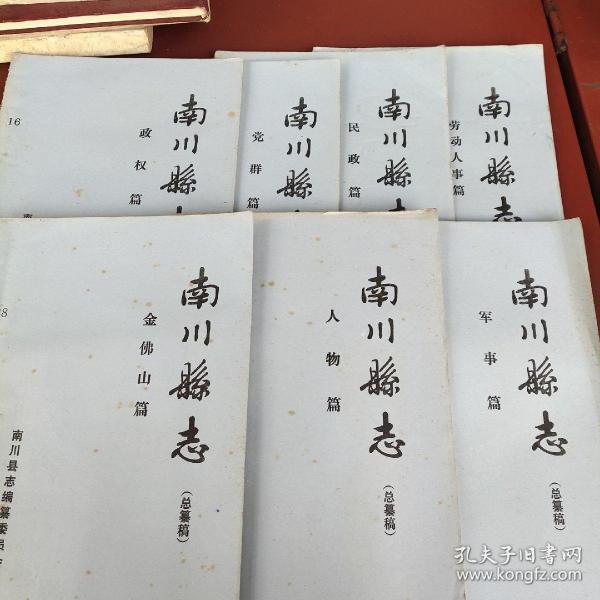 16
南川縣志
政权篇
南川縣志
党群篇
南川縣志
民政篇
南川縣志
劳动人事篇
8
南川縣志
(总纂稿)
金佛山篇
南川县志编纂委员
南川縣志
(总纂稿)
人物篇
南川縣志
(总纂稿)
军事篇
孔夫子旧书网
www.kongfz.com